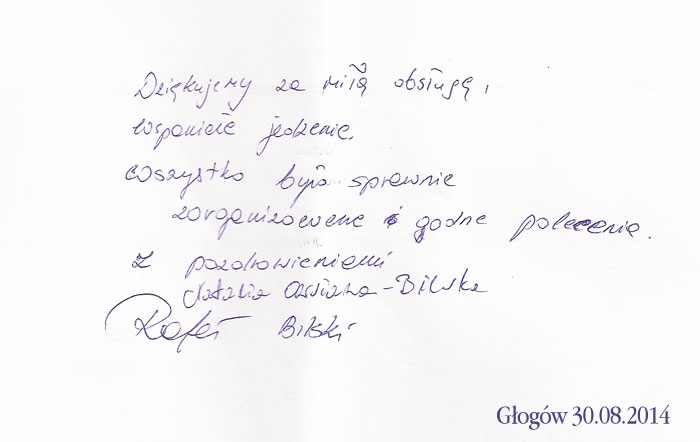 Dziękujemy za miłą obsługę,
wspaniałe jedzenie.
Wszystko było sprawnie
zorganizowane i godne polecenia.
Z pozdrowieniami
Natalia -Bilska
Rafał Bilski
Głogów 30.08.2014